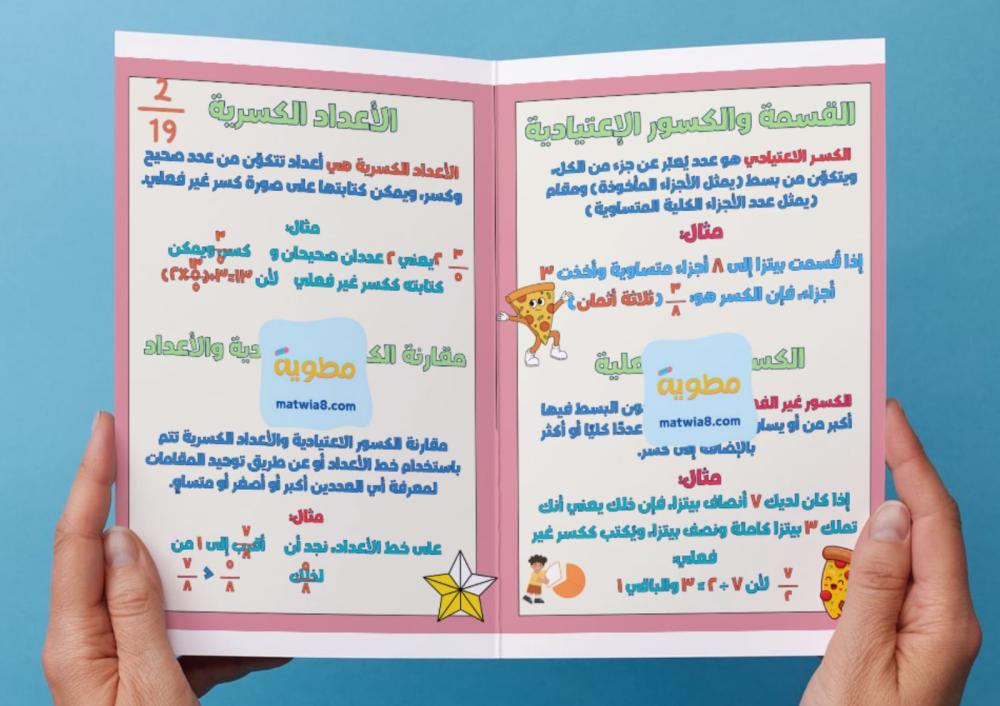 القسمة والكسور الإعتيادية
الكسر الاعتيادي هو عدد يُعبّر عن جزء من الكل،
ويتكوّن من بسط (يمثل الأجزاء المأخوذة) ومقام
(يمثل عدد الأجزاء الكلية المتساوية)
مثال:
إذا قُسمت بيتزا إلى ٨ أجزاء متساوية وأخذت ٣
أجزاء، فإن الكسر هو: ٣/٨ (ثلاثة أثمان)
الكسور
الكسور غير
البسط فيها
أكبر من أو يساو
عددًا كليًا أو أكثر
بالإضافة إلى كسر.
مثال:
إذا كان لديك ٧ أنصاف بيتزا، فإن ذلك يعني أنك
تملك ٣ بيتزا كاملة ونصف بيتزا، ويُكتب ككسر غير
فعلي:
٧/٢ لأن ٧ ÷ ٢ = ٣ والباقي ١
مطوية
matwia8.com
2/19
الأعداد الكسرية
الأعداد الكسرية هي أعداد تتكوّن من عدد صحيح
وكسر، ويمكن كتابتها على صورة كسر غير فعلي.
مثال:
٢ ٣/٥ يعني ٢ عددان صحيحان و ٣/٥ كسر ويمكن
كتابته ككسر غير فعلي لأن
مقارنة
والأعداد
مقارنة الكسور الاعتيادية والأعداد الكسرية تتم
باستخدام خط الأعداد أو عن طريق توحيد المقامات
لمعرفة أي العددين أكبر أو أصغر أو متساوٍ.
مثال:
على خط الأعداد، نجد أن ٧/٨ أقرب إلى ١ من
٥/٨ لذلك ٥/٨ < ٧/٨
مطوية
matwia8.com